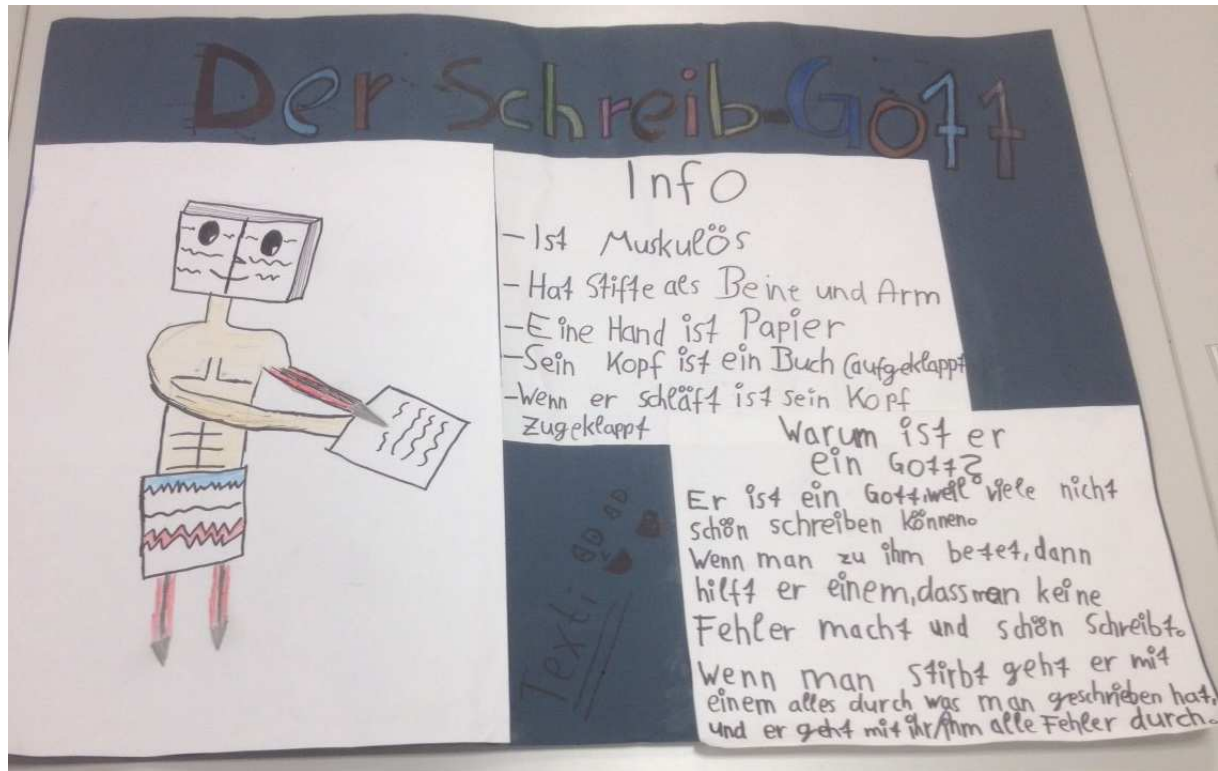 Der Schreib-Gott
Info
- Ist Muskulös
- Hat Stifte als Beine und Arm
- Eine Hand ist Papier
- Sein Kopf ist ein Buch (aufgeklappt
- Wenn er schläft ist sein Kopf
zugeklappt
Warum ist er
ein Gott?
Er ist ein Gott, weil viele nicht
schön schreiben können.
Wenn man zu ihm betet, dann
hilft er einem, dass man keine
Fehler macht und schön Schreibt.
Wenn man stirbt geht er mit
einem alles durch was man geschrieben hat,
und er geht mit ihr/ihm alle Fehler durch.
Texti